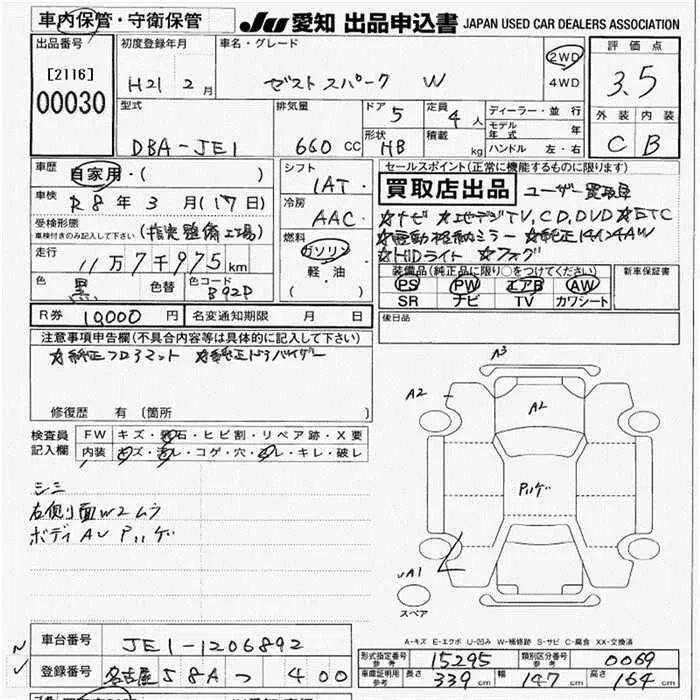 車内保管・守衛保管
JU 愛知 出品申込書 JAPAN USED CAR DEALERS ASSOCIATION
出品番号
[2116]
00030
初度登録年月
H21 2月
車名・グレード
ゼスト スパーク W
2WD
4WD
評価点
3.5
外装 内装
C B
型式
DBA-JE1
排気量
660 cc
ドア 5
形状 HB
定員 4人
積載 kg
ディーラー・並行
モデル年式 年
ハンドル 左・右
車歴
自家用・( )
車検 R8年3月(17日)
受検形態
車検付きのみ記入して下さい
(指定整備工場)
走行 11万7千975km
色 黒 色替 色コード B92P
シフト
IAT
冷房
AAC
燃料
ガソリン
軽油
( )
セールスポイント(正常に機能するものに限ります)
買取店出品 ユーザー買取車
☆ナビ ☆地デジTV,CD,DVD ☆ETC
☆電動格納ミラー ☆純正14インチAW
☆HIDライト ☆フォグ
装備品(純正品に限り○をつけてください)
PS PW エアB AW
SR ナビ TV カワシート
新車保証書
R券 10,000円 名変通知期限 月 日
後日品
注意事項申告欄(不具合内容等は具体的に記入して下さい)
☆純正フロアマット ☆純正ドアバイザー
修復歴 有 [箇所 ]
検査員記入欄
FW キズ・飛石・ヒビ割・リペア跡・X要
内装 キズ・汚レ・コゲ・穴・スレ・キレ・破レ
シミ
右側面W2ムラ
ボディAU Pハゲ
A3
A2
A2
Pハゲ
A1
スペア
A-キズ E-エクボ U-凹み W-補修跡 S-サビ C-腐食 XX-交換済
車台番号 JE1-1206892
登録番号 名古屋 58A つ 400
形式指定番号 参考 15295 類別区分番号 参考 0069
車庫証明用 参考 長さ 339cm 幅 147cm 高さ 164cm